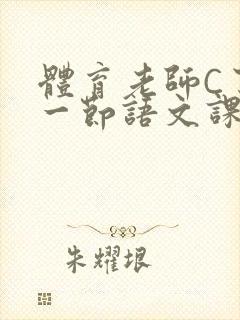 體育老師C
一節語文課
朱耀垠